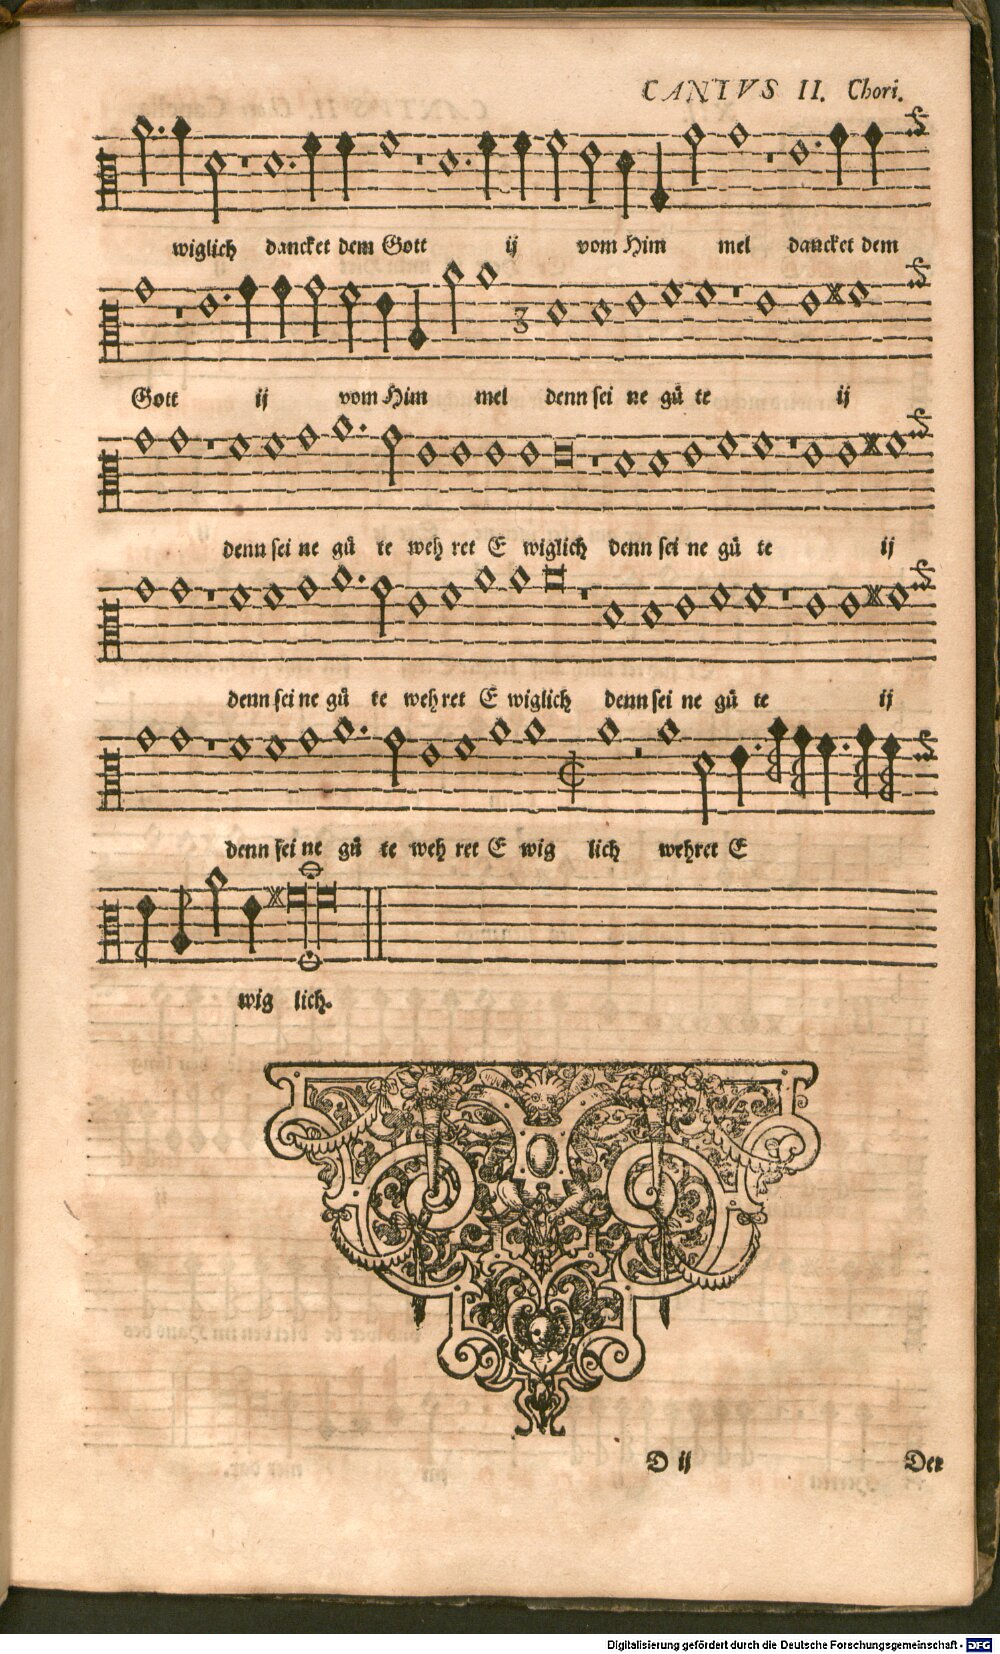 CANTVS II. Chori.
wiglich dancket dem Gott ij vom Him mel dancket dem
Gott ij vom Him mel denn sei ne gü te ij
denn sei ne gü te weh ret E wiglich denn sei ne gü te ij
denn sei ne gü te weh ret E wiglich denn sei ne gü te ij
denn sei ne gü te weh ret E wig lich wehret E
wig lich.
D ij Der
Digitalisierung gefördert durch die Deutsche Forschungsgemeinschaft - DFG